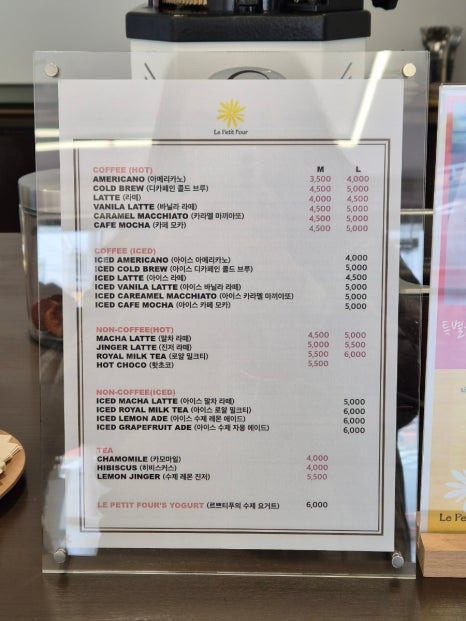 Le Petit Four
COFFEE (HOT) M L
AMERICANO (아메리카노) 3,500 4,000
COLD BREW (디카페인 콜드 브루) 4,500 5,000
LATTE (라떼) 4,000 4,500
VANILA LATTE (바닐라 라떼) 4,500 5,000
CARAMEL MACCHIATO (카라멜 마끼아또) 4,500 5,000
CAFE MOCHA (카페 모카) 4,500 5,000
COFFEE (ICED)
ICED AMERICANO (아이스 아메리카노) 4,000
ICED COLD BREW (아이스 디카페인 콜드 브루) 5,000
ICED LATTE (아이스 라떼) 4,500
ICED VANILA LATTE (아이스 바닐라 라떼) 5,000
ICED CAREAMEL MACCHIATO (아이스 카라멜 마끼아또) 5,000
ICED CAFE MOCHA (아이스 카페 모카) 5,000
NON-COFFEE(HOT)
MACHA LATTE (말차 라떼) 4,500 5,000
JINGER LATTE (진저 라떼) 5,000 5,500
ROYAL MILK TEA (로얄 밀크티) 5,500 6,000
HOT CHOCO (핫초코) 5,500
NON-COFFEE(ICED)
ICED MACHA LATTE (아이스 말차 라떼) 5,000
ICED ROYAL MILK TEA (아이스 로얄 밀크티) 6,000
ICED LEMON ADE (아이스 수제 레몬 에이드) 6,000
ICED GRAPEFRUIT ADE (아이스 수제 자몽 에이드) 6,000
TEA
CHAMOMILE (카모마일) 4,000
HIBISCUS (히비스커스) 4,000
LEMON JINGER (수제 레몬 진저) 5,500
LE PETIT FOUR'S YOGURT (르쁘티푸의 수제 요거트) 6,000
특별
Le Pe